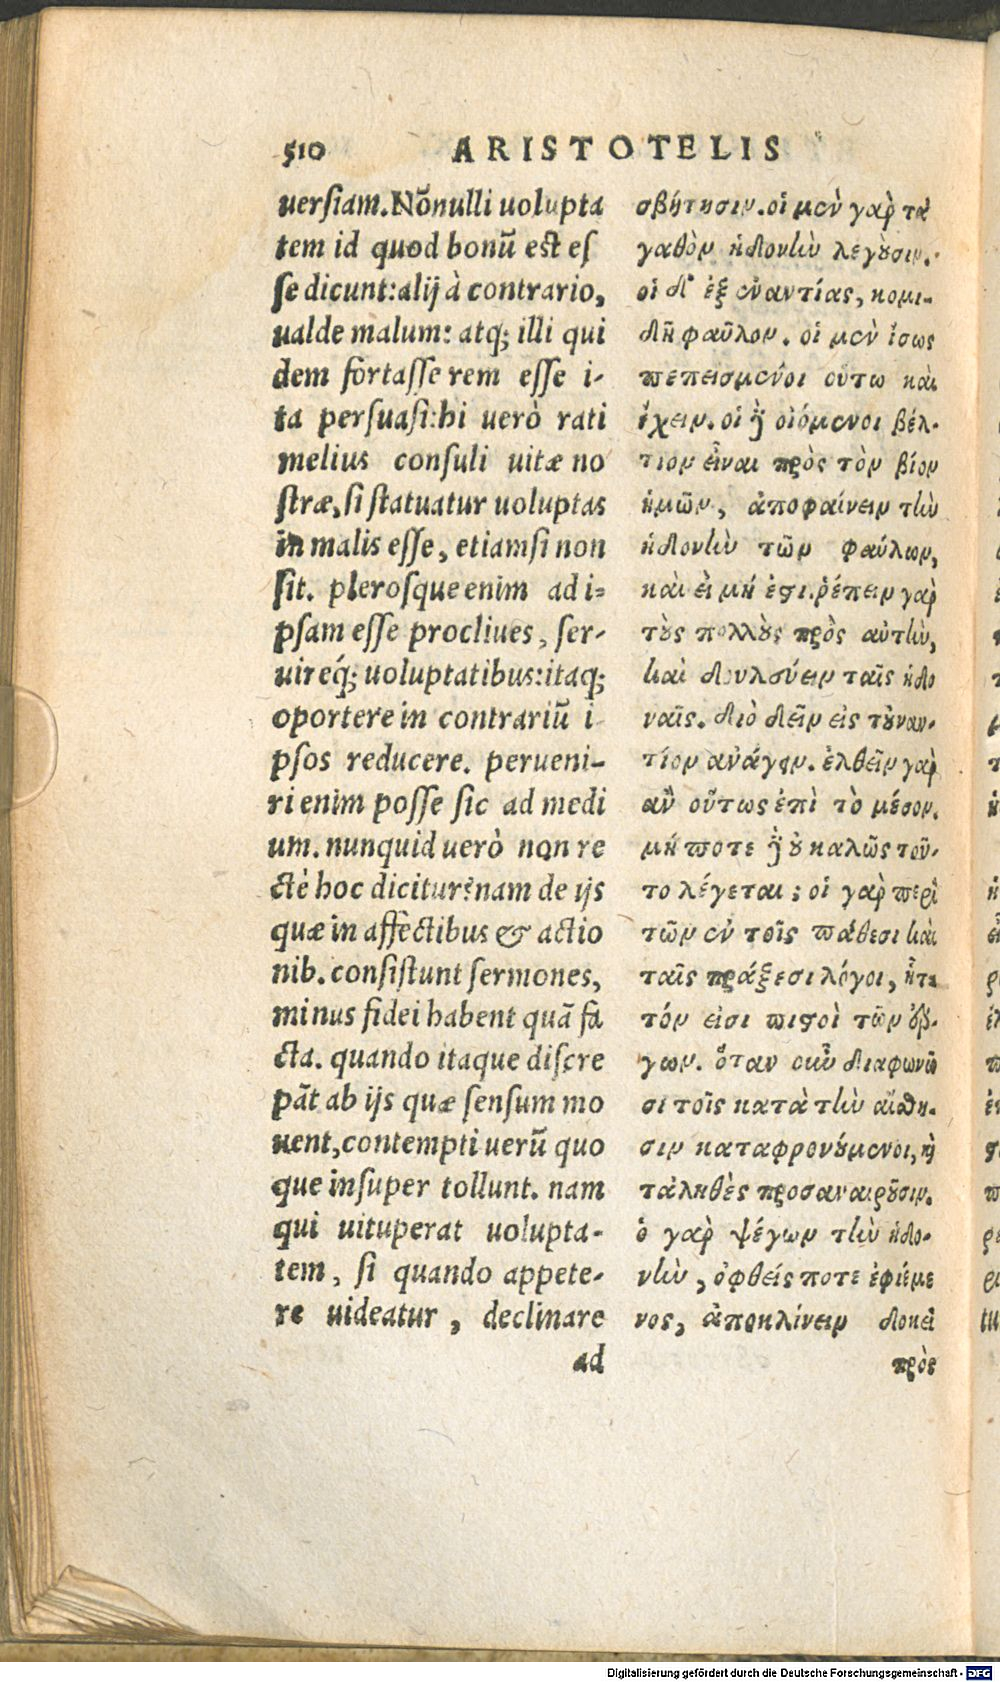 510 ARISTOTELIS
uerſiam. Nõnulli uolupta
tem id quod bonũ est eſ
ſe dicunt: alij à contrario,
ualde malum: atq; illi qui
dem fortaſſe rem eſſe i-
ta perſuaſi: hi uerò rati
melius conſuli uitæ no
ſtræ, ſi ſtatuatur uoluptas
in malis eſſe, etiamſi non
ſit. pleroſque enim ad i-
pſam eſſe procliues, ſer-
uireq́; uoluptatibus: itaq;
oportere in contrariũ i
pſos reducere. perueni-
ri enim poſſe ſic ad medi
um. nunquid uerò non re
ctè hoc dicitur? nam de ijs
quæ in affectibus & actio
nib. conſiſtunt ſermones,
minus fidei habent quã fa
cta. quando itaque diſcre
pãt ab ijs quæ ſenſum mo
uent, contempti uerũ quo
que inſuper tollunt. nam
qui uituperat uolupta-
tem, ſi quando appete-
re uideatur, declinare
ad
σβήτησιν. οἱ μὲν γαρ̀ τἀ
γαθὸν ἡδονὴν λέγουσιν.
οἱ δ' ἐξ ἐναντίας, κομι-
δῆ φαῦλον. οἱ μὲν ἴσως
πεπεισμένοι οὕτω καὶ
ἔχειν. οἱ δὲ οἰόμενοι βέλ-
τιον εἶναι πρὸς τὸν βίον
ἡμῶν, ἀποφαίνειν τὴν
ἡδονὴν τῶν φαύλων,
καὶ εἰ μή ἐστι. ῥέπειν γαρ̀
τοὺς πολλοὺς πρὸς αὐτὴν,
καὶ δουλεύειν ταῖς ἡδο
ναῖς. διὸ δεῖν εἰς τοὐναν-
τίον ἀνάγειν. ἐλθεῖν γαρ̀
ἂν οὕτως ἐπὶ τὸ μέσον.
μή ποτε δὲ οὐ καλῶς τοῦ-
το λέγεται; οἱ γαρ̀ περὶ
τῶν ἐν τοῖς πάθεσι καὶ
ταῖς πράξεσι λόγοι, ἧττ
τόν εἰσι πιστοὶ τῶν ἔρ-
γων. ὅταν οὖν διαφωνῶ
σι τοῖς κατὰ τὴν αἴσθη-
σιν καταφρονούμενοι, καὶ
τἀληθὲς προσαναιροῦσιν.
ὁ γαρ̀ ψέγων τὴν ἡδο-
νὴν, ὀφθείς ποτε ἐφιέμε
νος, ἀποκλίνειν δοκεῖ
πρὸς
Digitalisierung gefördert durch die Deutsche Forschungsgemeinschaft - DFG